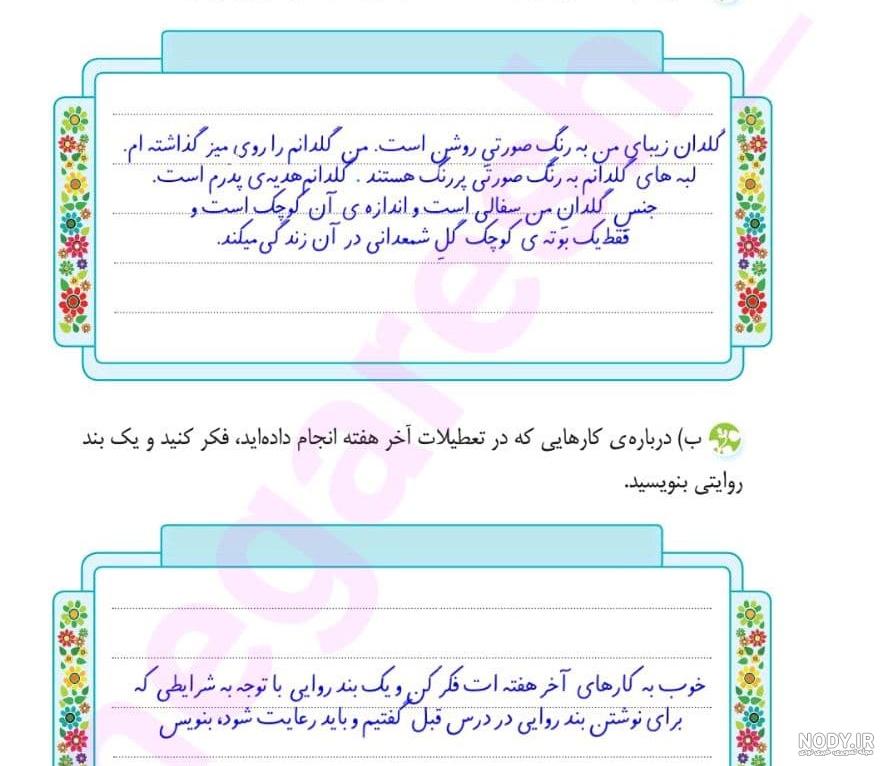 گلدان زیبای من به رنگ صورتیِ روشن است. من گلدانم را روی میز گذاشته ام.
لبه های گلدانم به رنگ صورتی پررنگ هستند . گلدانم هدیه‌ی پدرم است.
جنسِ گلدانِ من سفالی است و اندازه ی آن کوچک است و
فقط یک بوته ی کوچک گلِ شمعدانی در آن زندگی میکند.
ب) درباره‌ی کارهایی که در تعطیلات آخر هفته انجام داده‌اید، فکر کنید و یک بند
روایتی بنویسید.
خوب به کارهای آخر هفته ات فکر کن و یک بند روایی با توجه به شرایطی که
برای نوشتن بند روایی در درس قبل گفتیم و باید رعایت شود، بنویس
negaresh_
NODY.IR